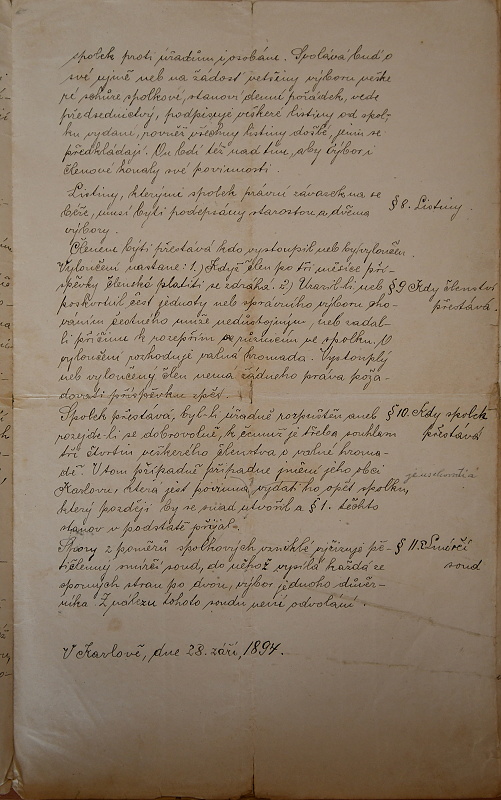 spolek proti úřadům i osobám. Svolává buď o
své ujmě neb na žádost většiny výboru veške
ré schůze spolkové, stanoví denní pořádek, vede
předsednictvý, podpisuje veškeré listiny od spol-
ku vydané, rovněž všechny listiny došlé, jemu se
předkládají. On bdí též nad tím, aby výbor i
členové konaly své povinnosti.
Listiny, kterými spolek právní závazek na se
béře, musí býti podepsány starostou a dvěma
výbory.
§ 8. Listiny.
Členem býti přestává kdo vystoupil neb byl vyloučen.
Vyloučení nastane: 1.) Když člen po tři měsíce pří-
spěvky členské platiti se zdráhá. 2.) Urazil-li neb
poskvrnil čest jednoty neb správního výboru cho-
váním čestného muže nedůstojným, neb zadal-
li příčinu k rozepřím a různicím ve spolku. O
vyloučení rozhoduje valná hromada. Vystouplý
neb vyloučený člen nemá žádného práva poža-
dovati příspěvku zpět.
§ 9 Kdy členství
přestává.
Spolek přestává, byl-li úředně rozpuštěn aneb
rozejde-li se dobrovolně, k čemuž je třeba souhlasu
tří čtvrtin veškerého členstva o valné hroma-
dě. V tom případně připadne jmění jeho obci
Karlovu, která jest povinna vydati ho opět spolku,
který později by se snad utvořil a § 1. těchto
stanov v podstatě přijal.
§ 10. Kdy spolek
přestává
Spory z poměrů spolkových vzniklé vyřizuje pě-
tičlenný smírčí soud, do něhož vysílá každá ze
sporných stran po dvou, výbor jednoho důvěr-
níka. Z nálezu tohoto soudu není odvolání.
§ 11. Smírčí
soud
V Karlově, dne 28. září, 1894.